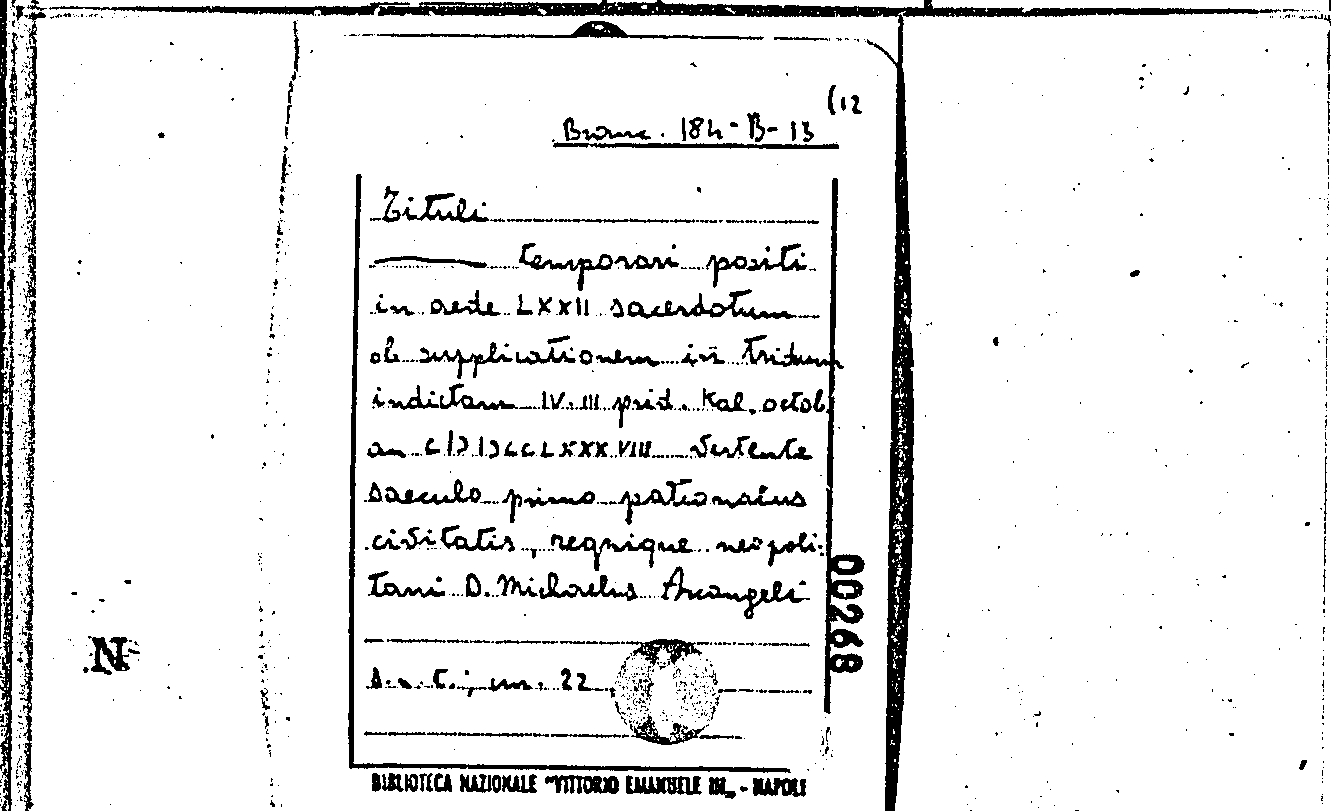 (12
Branc. 184-B-13
Tituli
temporari positi
in aede LXXII sacerdotum
ob supplicationem in triduum
indictam IV. III prid. Kal. octob.
an CIƆIƆCCLXXXVIII vertente
saeculo primo patronatus
civitatis, regnique neapoli-
tani D. Michaelis Arcangeli
s.n.t.; cm. 22
00268
BIBLIOTECA NAZIONALE "VITTORIO EMANUELE III" - NAPOLI
N